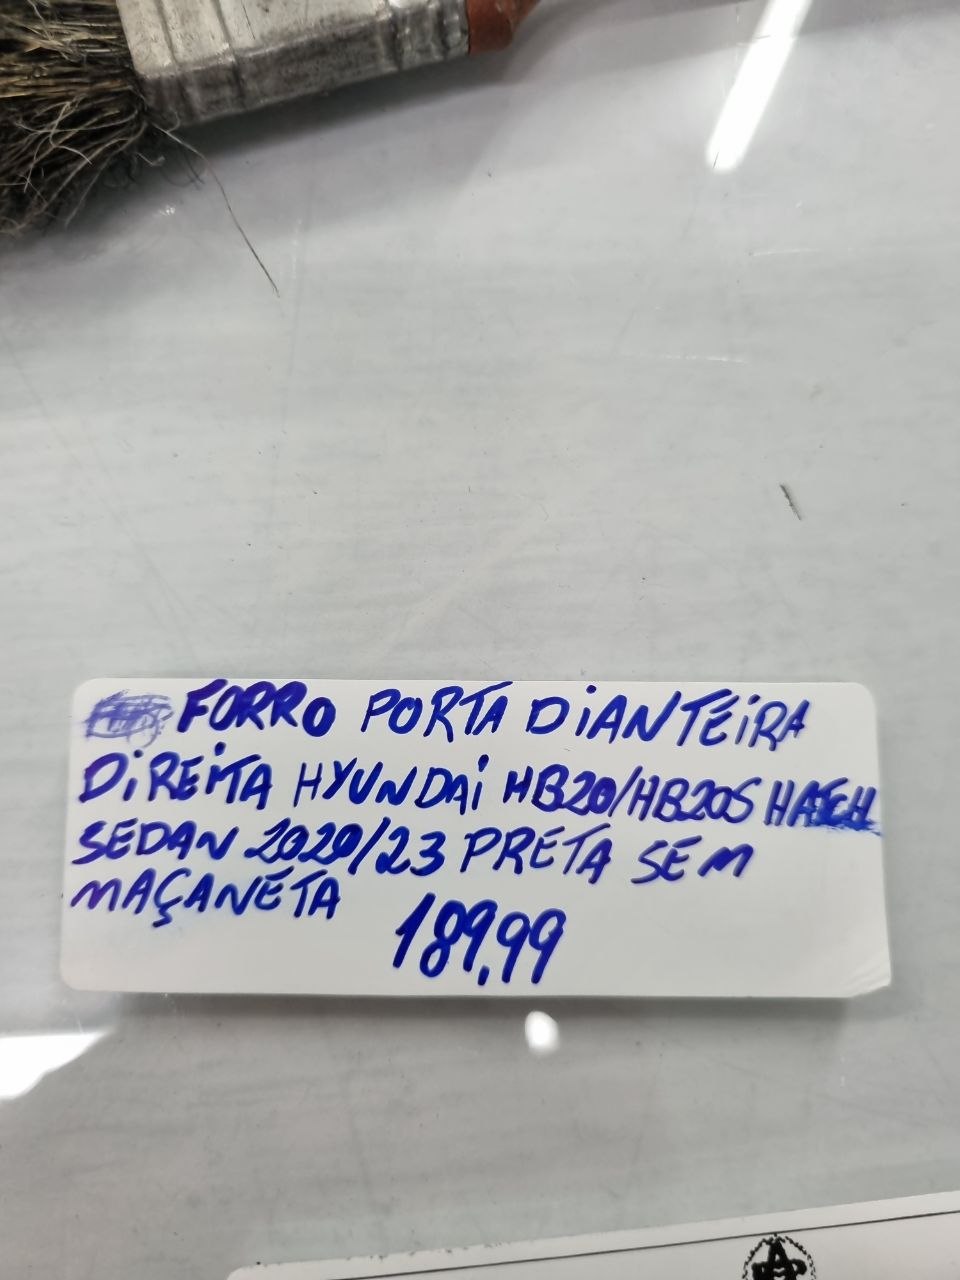 FORRO PORTA DIANTEIRA
DIREITA HYUNDAI HB20/HB20S HATCH
SEDAN 2020/23 PRETA SEM
MAÇANETA
189,99